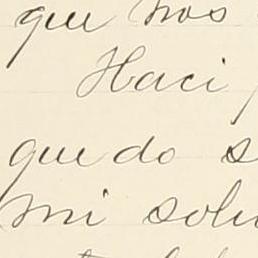 que nos
Haci
quedo s
mi solu